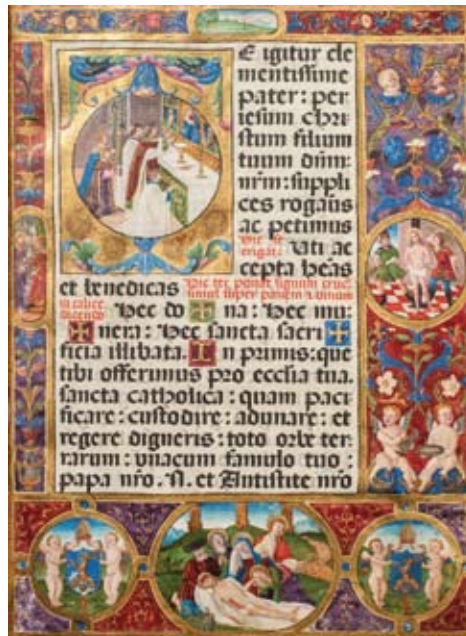 E igitur cle
mentissime
pater : per
iesum chri
stum filium
tuum dñm:
nr̃m: suppli
ces rogãs
ac petimus
Hic se
erigat. Uti ac
cepta h̃eas
et benedicas Hic ter ponat signum cruc.
simul super panem ⁊ vinum
in calice
dicendo
Hec do ✠ na : Hec mu:
✠ nera : Hec sancta sacri ✠
ficia illibata. In primis: que
tibi offerimus pro ecclia tua.
sancta catholica : quam paci
ficare : custodire : adunare : et
regere digneris : toto orbe ter
rarum : unacum famulo tuo :
papa nr̃o. N. et Antistite nr̃o